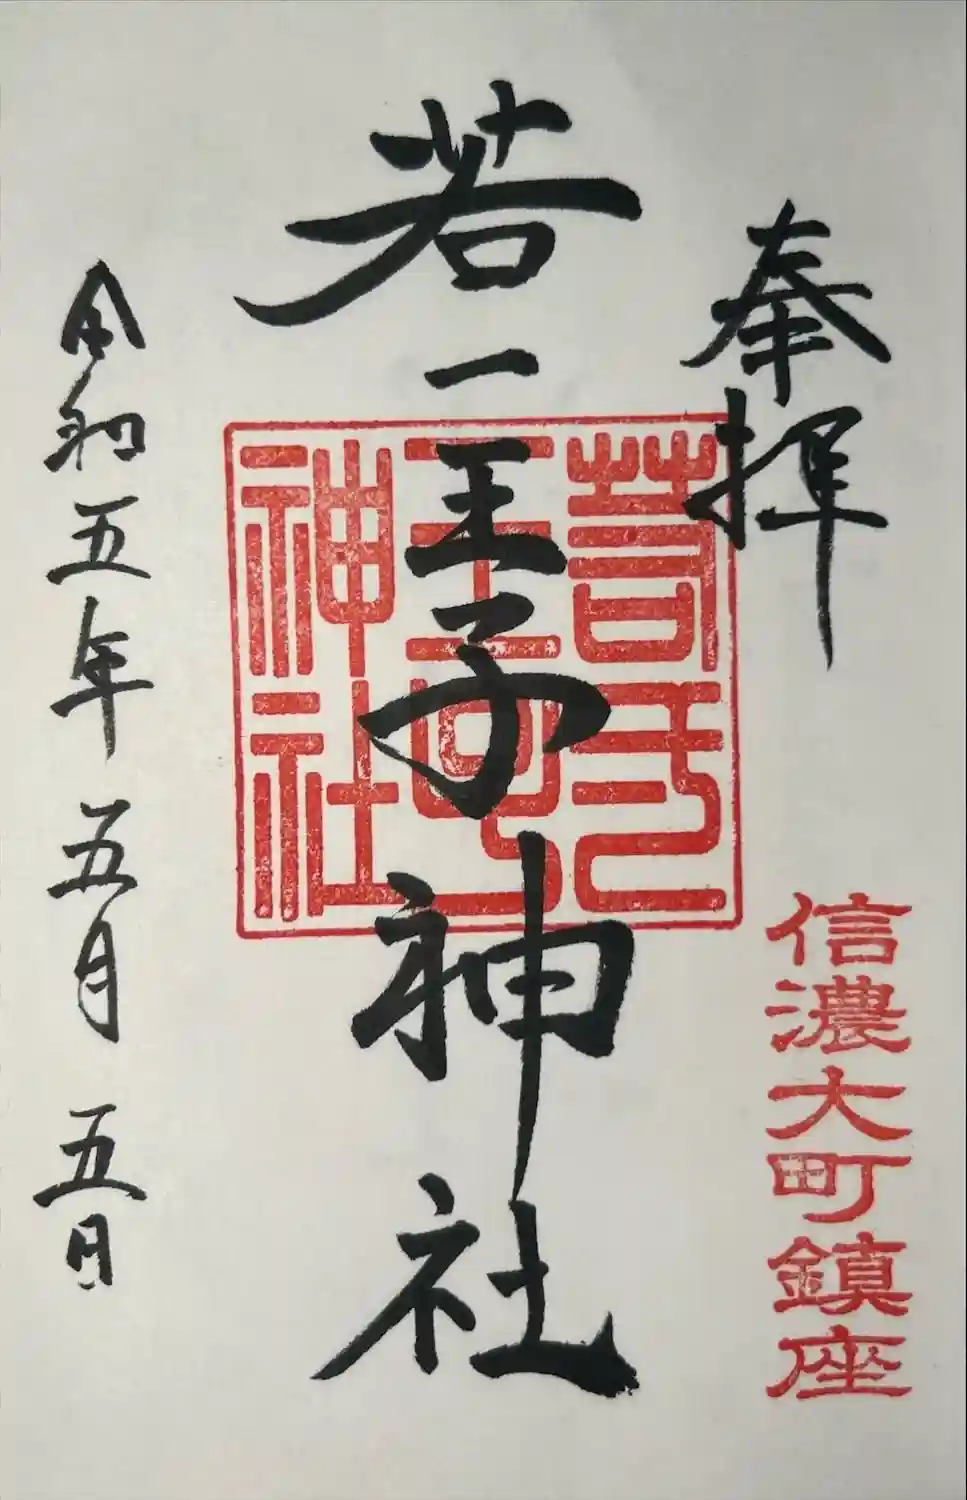 奉拝
信濃大町鎮座
若一王子神社
若一
王子
神社
令和五年五月五日